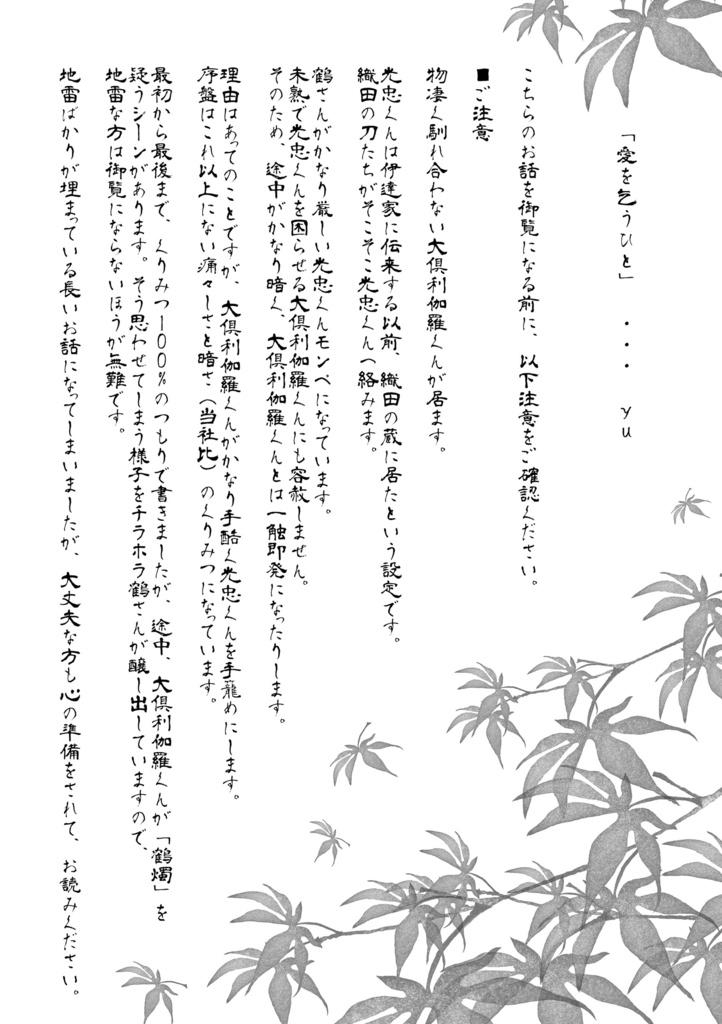 「愛を乞うひと」 ・・・ yu
こちらのお話を御覧になる前に、以下注意をご確認ください。
■ご注意
物凄く馴れ合わない大倶利伽羅くんが居ます。
光忠くんは伊達家に伝来する以前、織田の蔵に居たという設定です。
織田の刀たちがそこそこ光忠くんへ絡みます。
鶴さんがかなり厳しい光忠くんモンペになっています。
未熟で光忠くんを困らせる大倶利伽羅くんにも容赦しません。
そのため、途中がかなり暗く、大倶利伽羅くんとは一触即発になったりします。
理由はあってのことですが、大倶利伽羅くんがかなり手酷く光忠くんを手籠めにします。
序盤はこれ以上にない痛々しさと暗さ（当社比）のくりみつになっています。
最初から最後まで、くりみつ100%のつもりで書きましたが、途中、大倶利伽羅くんが「鶴燭」を
疑うシーンがあります。そう思わせてしまう様子をチラホラ鶴さんが醸し出していますので、
地雷な方は御覧にならないほうが無難です。
地雷ばかりが埋まっている長いお話になってしまいましたが、大丈夫な方も心の準備をされて、お読みください。